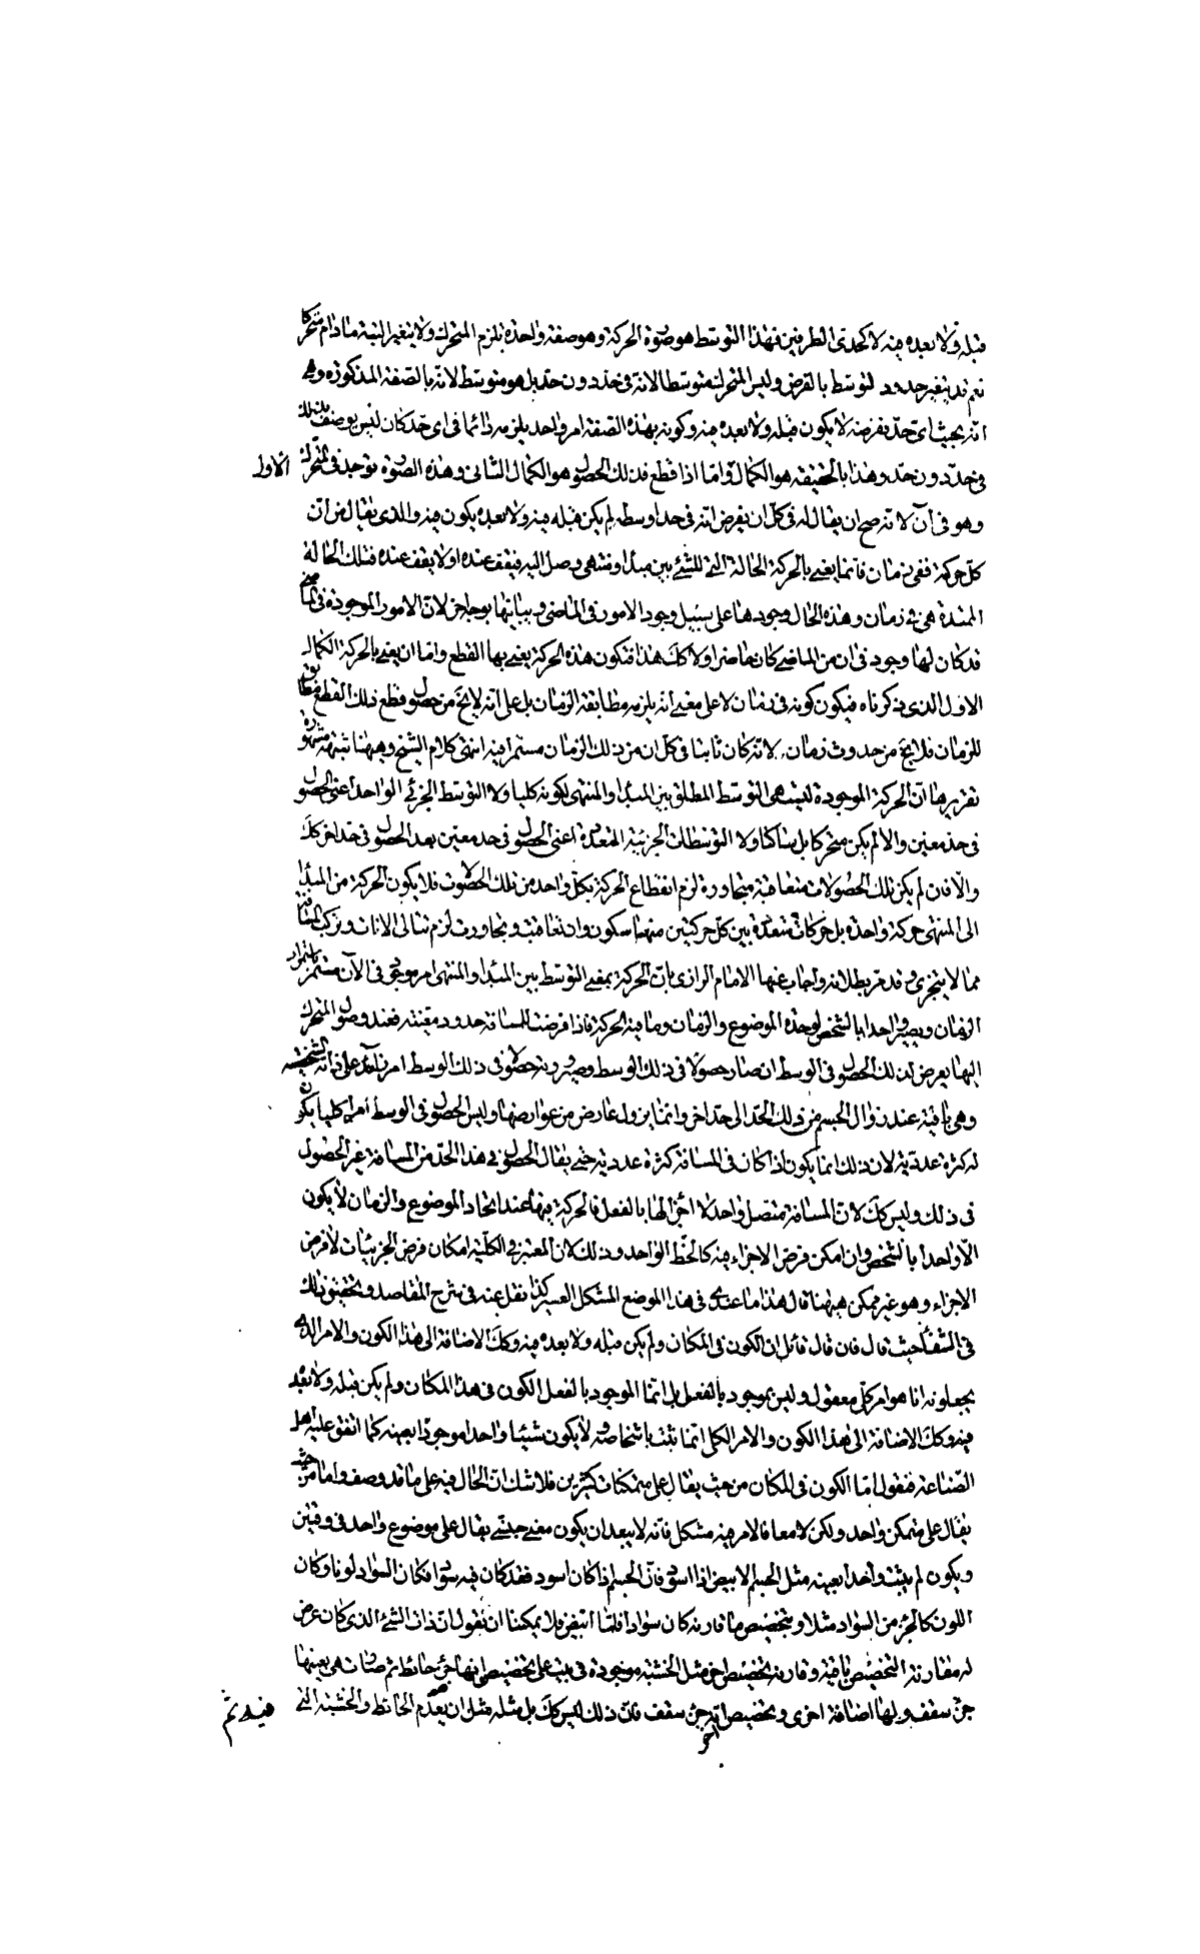 قبله ولا بعده فيه لا كحدى الطرفين فهذا التوسط هو صورة الحركة وهو صفة واحدة يلزم المتحرك ولا يتغير البتة ما دام متحركا
نعم قد يتغير حدود التوسط بالفرض وليس المتحرك متوسطا لانه فى حد دون حد بل هو متوسط لانه بالصفة المذكورة وهى
انه بحيث اى حد يفرضه لا يكون قبله ولا بعده فيه وكونه بهذه الصفة امر واحد يلزمه دائما فى اى حد كان ليس يوصف بذلك
فى حد دون حد وهذا بالحقيقة هو الكمال الاول واما اذا قطع فذلك الحصول هو الكمال الثانى وهذه الصورة توجد فى المتحرك
وهو فى آن لانه صح ان يقال له فى كل ان يفرض انه فى حد اوسط لم يكن قبله فيه ولا بعده يكون فيه والذى يقال من ان
كل حركة ففى زمان فانما يعنى بالحركة الحالة التى للشئ بين مبدأ ومنتهى وصل اليه فيقف عنده او لا يقف عنده فتلك الحالة
الممتدة هى فى زمان وهذه الحال وجودها على سبيل وجود الامور فى الماضى ويباينها بوجه اخر لان الامور الموجودة فى الماضى
قد كان لها وجود فى ان من الماضى كان حاضرا ولا كك هذا فتكون هذه الحركة يعنى بها القطع واما ان يعنى بالحركة الكمال
الاول الذى ذكرناه فيكون كونه فى زمان لا على معنى انه يلزمه مطابقة الزمان بل على انه لا يخ من حصول قطع ذلك القطع مطابق
للزمان فلا يخ من حدوث زمان لانه كان ثابتا فى كل ان من ذلك الزمان مستمرا فيه انتهى كلام الشيخ وههنا شبهة مشهورة
تقريرها ان الحركة الموجودة ليست هى التوسط المطلق بين المبدأ والمنتهى لكونه كليا ولا التوسط الجزئى الواحد اعنى الحصول
فى حد معين والا لم يكن متحركا بل ساكنا ولا التوسطات الجزئية المتعددة اعنى الحصول فى حد معين بعد الحصول فى حد اخر كك
والا فان لم يكن تلك الحصولات متعاقبة متجاورة لزم انقطاع الحركة بكل واحد من تلك الحصولات فلا يكون الحركة من المبدأ
الى المنتهى حركة واحدة بل حركات متعددة بين كل حركتين منهما سكون وان تعاقبت وتجاورت لزم تتالى الانات وتركب المسافة
مما لا يتجزى وقد مر بطلانه واجاب عنها الامام الرازى بان الحركة بمعنى التوسط بين المبدأ والمنتهى امر موجود فى الآن مستمر باستمرار
الزمان ويصير واحدا بالشخص لوحدة الموضوع والزمان وما فيه الحركة فاذا فرضت للمسافة حدود معينة فعند وصول المتحرك
اليها يعرض لذلك الحصول فى الوسط ان صار حصولا فى ذلك الوسط وصيرورته حصولا فى ذلك الوسط امر زائد على ذاته الشخصية
وهى باقية عند زوال الجسم من ذلك الحد الى حد اخر وانما يزول عارض من عوارضها وليس الحصول فى الوسط امرا كليا يكون
له كثرة عددية لان ذلك انما يكون اذا كان فى المسافة كثرة عددية حتى يقال الحصول فى هذا الحد من المسافة غير الحصول
فى ذلك وليس كك لان المسافة متصل واحد لا اجزا لها بالفعل فالحركة فيها عند اتحاد الموضوع والزمان لا يكون
الا واحدا بالشخص وان امكن فرض الاجزاء فيه كالخط الواحد وذلك لان المعتبر فى الكلية امكان فرض الجزئيات لا فرض
الاجزاء وهو غير ممكن ههنا قال هذا ما عندى فى هذا الموضع المشكل العسر كذا نقل عنه فى شرح المقاصد وتحقيق ذلك
فى الشفا حيث قال فان قال قائل ان الكون فى المكان ولم يكن قبله ولا بعده فيه وكك الاضافة الى هذا الكون والامر الذى
يجعلونه انا هو امر كلى معقول وليس بموجود بالفعل بل انما الموجود بالفعل الكون فى هذا المكان ولم يكن قبله ولا بعد
فيه وكك الاضافة الى هذا الكون والامر الكلى انما يثبت باشخاصه ولا يكون شيئا واحدا موجودا بعينه كما اتفق عليه اهل
الصناعة فنقول اما الكون فى المكان من حيث يقال على متمكنات كثيرين فلا شك ان الحال فيه على ما قد وصف واما من حيث
يقال على متمكن واحد ولكن لا معا فالامر فيه مشكل فانه لا يبعد ان يكون معنى جنسى يقال على موضوع واحد فى وقتين
ويكون لم يثبت واحدا بعينه مثل الجسم الابيض اذا اسود فان الجسم اذا كان اسود فقد كان فيه سواد فكان السواد لونا وكان
اللون كالجزء من السواد مثلا وبتخصيص ما قارنه كان سوادا فلما ابيض فلا يمكننا ان نقول ان ذات الشئ الذى كان عرض
له مقارنة التخصيص باقية وقارنه تخصيص اخر مثل الخشبة موجودة فى بيت على تخصيص انها جزء حائط ثم صارت هى بعينها
جزء سقف ولها اضافة اخرى وتخصيص اخر انه جزء سقف فان ذلك ليس كك بل مثله مثل ان يعدم الحائط والخشبة التى
فيه ثم